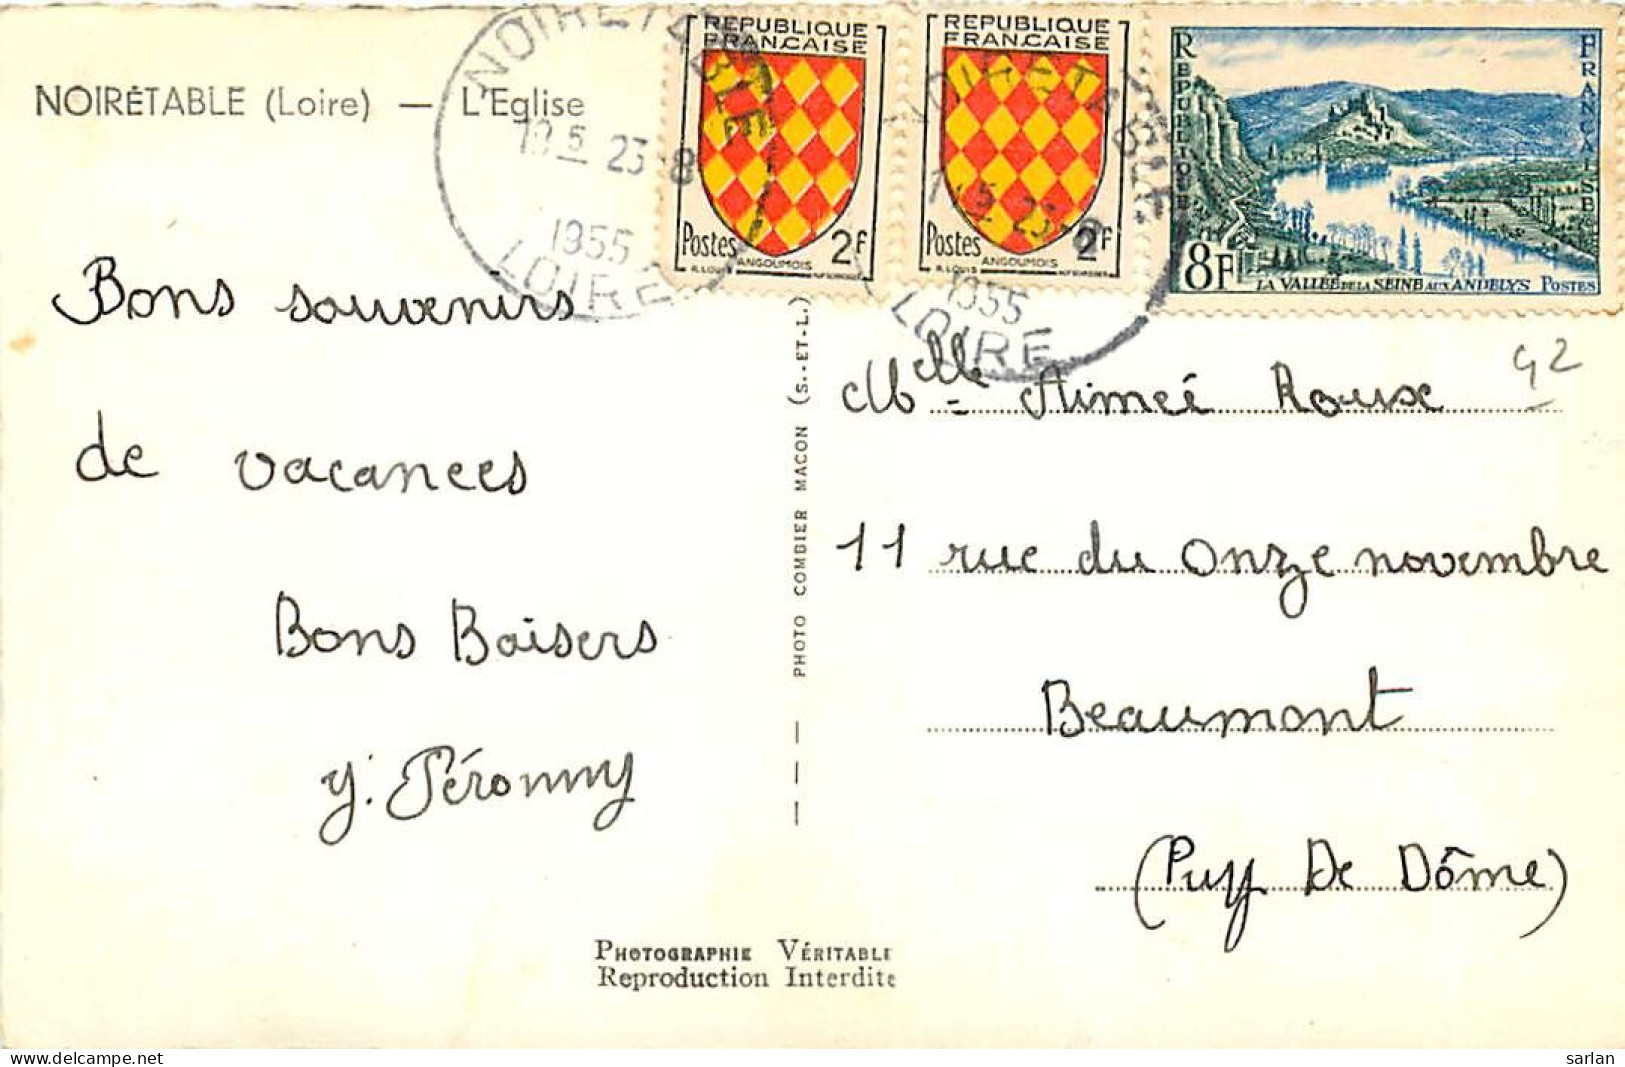 NOIRÉTABLE (Loire) — L'Eglise
NOIRETABLE
19 5 23-8
1955
LOIRE
REPUBLIQUE
FRANÇAISE
Postes
2F
ANGOUMOIS
R. LOUIS
REPUBLIQUE
FRANÇAISE
Postes
2F
ANGOUMOIS
R. LOUIS
NOIRETABLE
23-8
1955
LOIRE
REPUBLIQUE
FRANÇAISE
8F
LA VALLÉE DE LA SEINE AUX ANDELYS POSTES
Bons souvenirs
de vacances
Bons Baisers
y. Péronny
PHOTO COMBIER MACON (S.-ET-L.)
42
Melle Aimeé Roux
11 rue du Onze novembre
Beaumont
(Puy De Dôme)
PHOTOGRAPHIE VÉRITABLE
Reproduction Interdite
sarlan